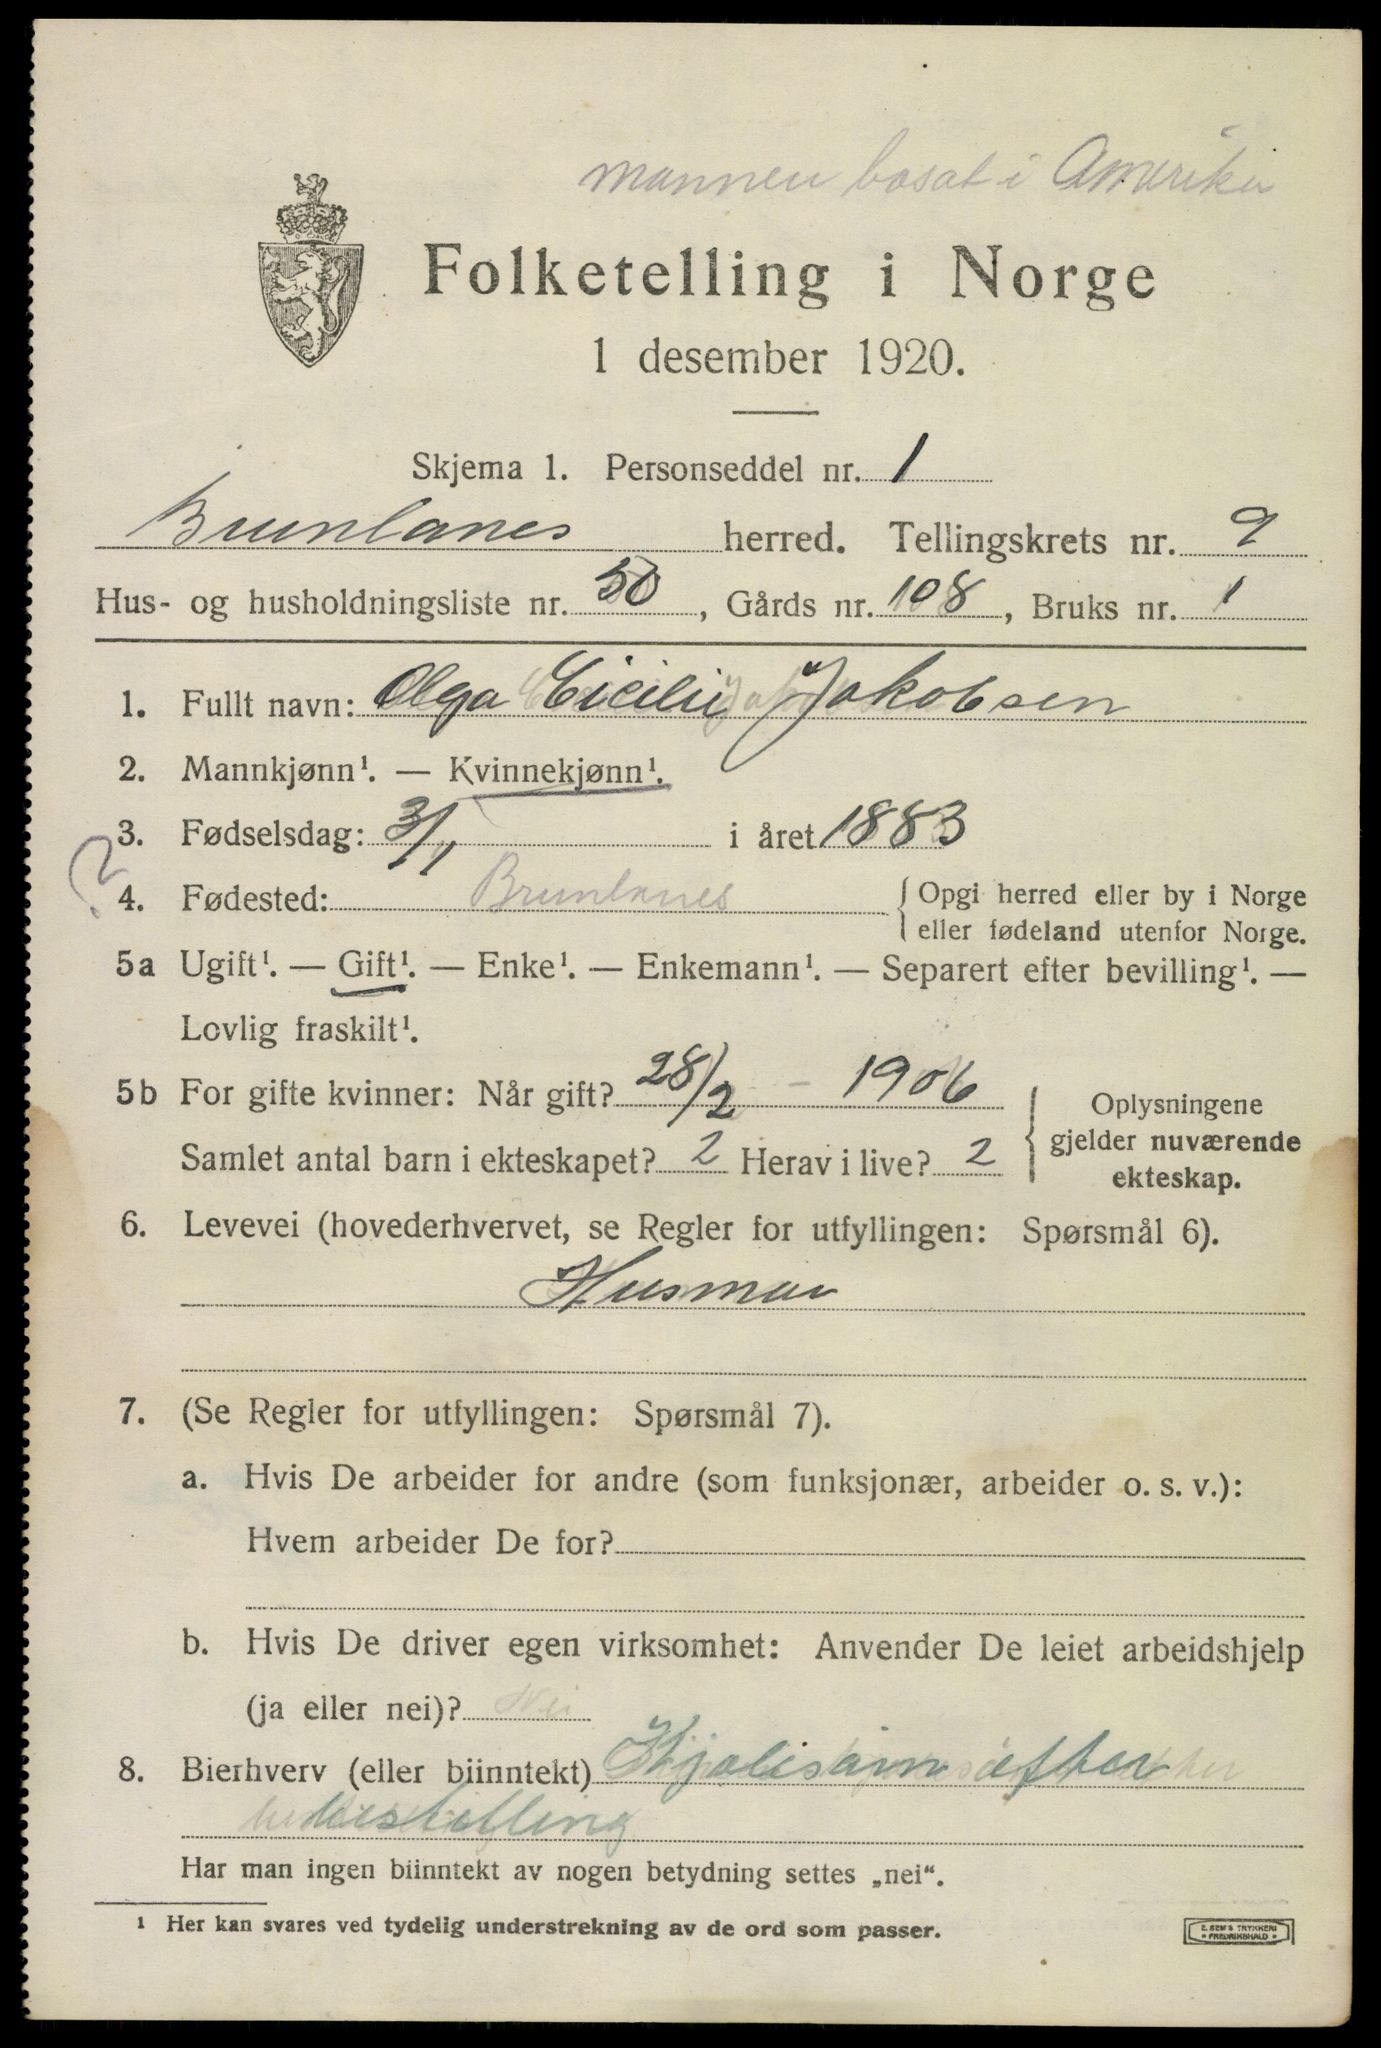 mannen bosat i Amerika
Folketelling i Norge
1 desember 1920.
Skjema 1. Personseddel nr. 1
Brunlanes herred. Tellingskrets nr. 9
Hus- og husholdningsliste nr. 50, Gårds nr. 108, Bruks nr. 1
1. Fullt navn: Olga Cicilie Jakobsen
2. Mannkjønn¹. — Kvinnekjønn¹.
3. Fødselsdag: 3/11 i året 1883
?
4. Fødested: Brunlanes { Opgi herred eller by i Norge
eller fødeland utenfor Norge.
5a Ugift¹. — Gift¹. — Enke¹. — Enkemann¹. — Separert efter bevilling¹. —
Lovlig fraskilt¹.
5b For gifte kvinner: Når gift? 28/2 - 1906
Samlet antal barn i ekteskapet? 2 Herav i live? 2
{ Oplysningene
gjelder nuværende
ekteskap.
6. Levevei (hovederhvervet, se Regler for utfyllingen: Spørsmål 6).
Husmor
7. (Se Regler for utfyllingen: Spørsmål 7).
a. Hvis De arbeider for andre (som funksjonær, arbeider o. s. v.):
Hvem arbeider De for?
b. Hvis De driver egen virksomhet: Anvender De leiet arbeidshjelp
(ja eller nei)? Nei
8. Bierhverv (eller biinntekt) Kjolesøm efter
bestelling
Har man ingen biinntekt av nogen betydning settes „nei“.
¹ Her kan svares ved tydelig understrekning av de ord som passer.
E. SEM'S TRYKKERI
• FREDRIKSHALD •